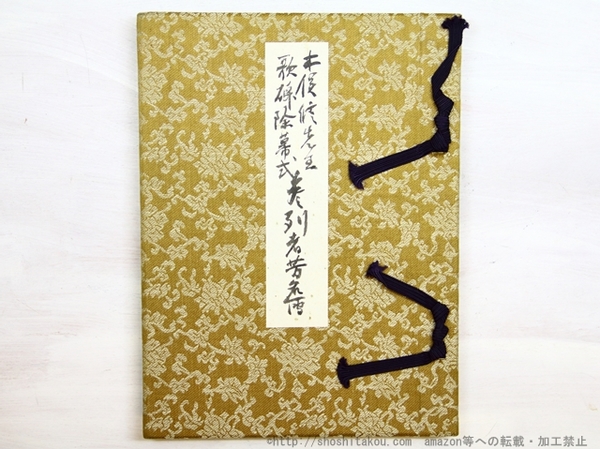 木俣修先生
歌碑除幕式 参列者芳名簿
©http://shoshitakou.com  amazon等への転載・加工禁止